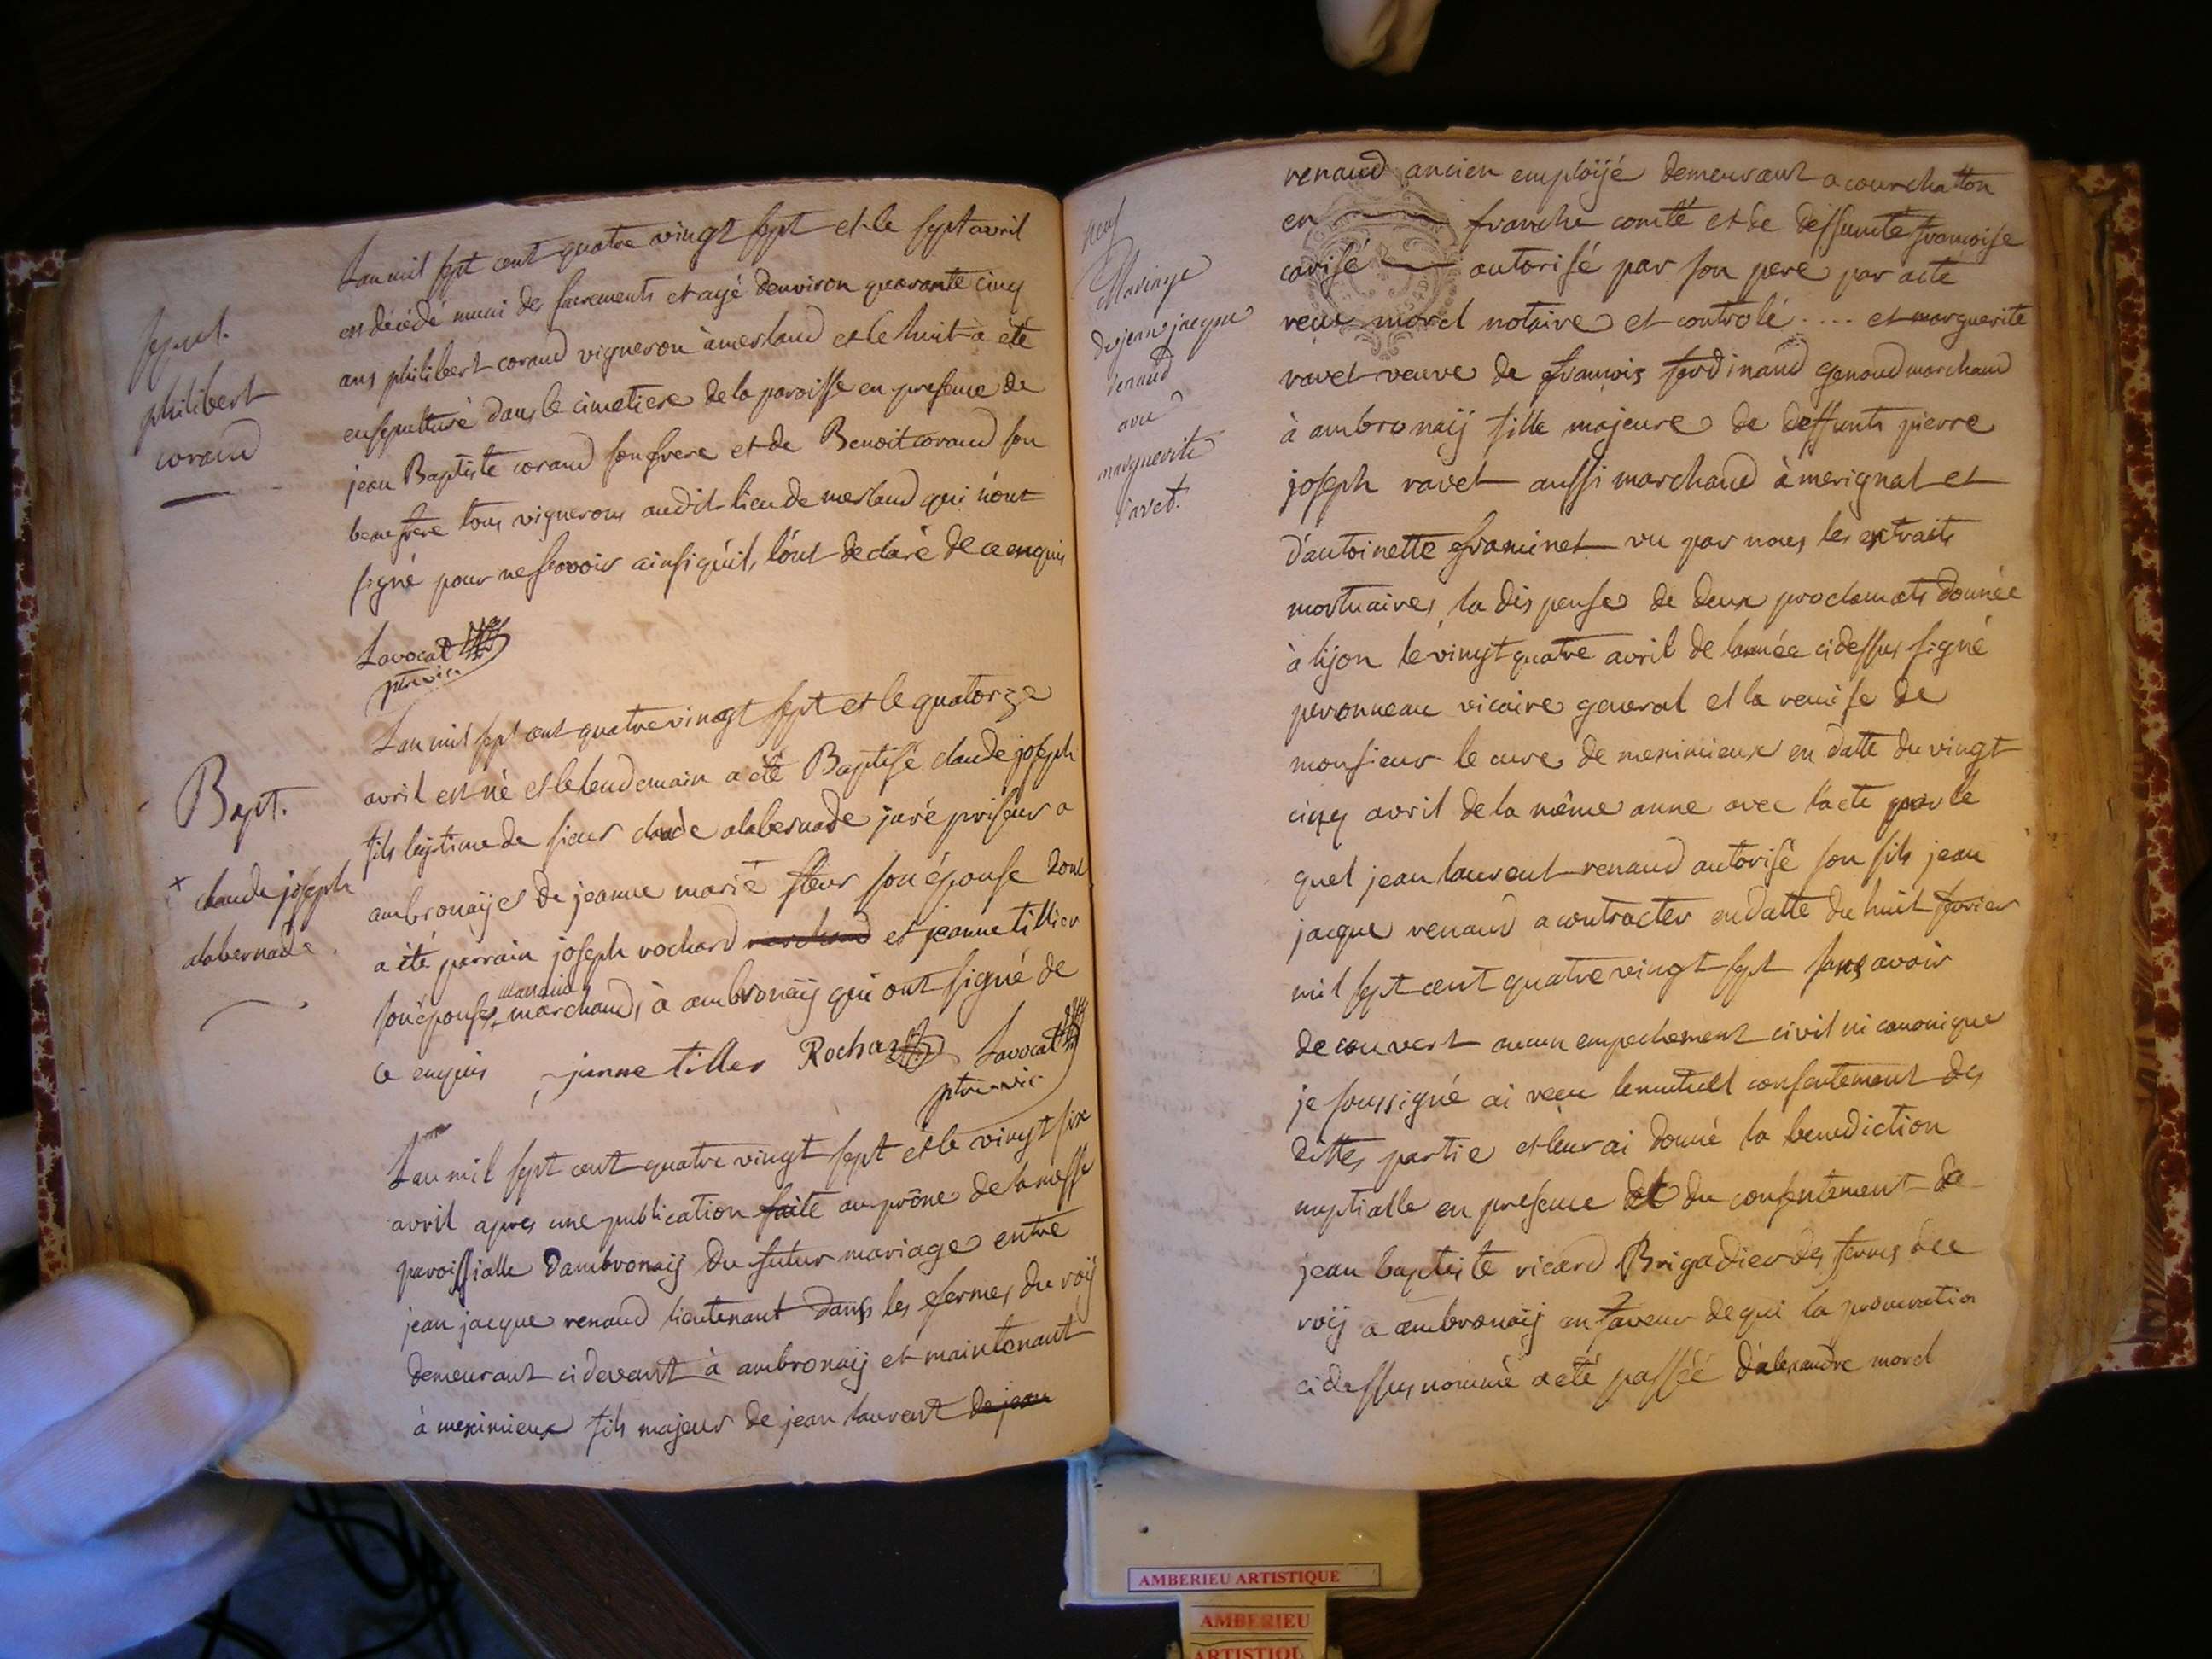 Sepul.
philibert
corand
L'an mil sept cent quatre vingt sept et le sept avril
est décédé muni des sacrements et agé denviron quarante cinq
ans philibert corand vigneron à merland et le huit a été
ensepulturé dans le cimetiere de la paroisse en presence de
jean Baptiste corand son frere et de Benoit corand son
beau frere tous vignerons audit lieu de merland qui n'ont
signé pour ne scavoir ainsi qu'ils l'ont declaré de ce enquis
Lavocat
ptre vic.
Bapt.
claude joseph
alabernade
L'an mil sept cent quatre vingt sept et le quatorze
avril est né et le lendemain a été Baptisé claude joseph
fils legitime de sieur claude alabernade juré priseur a
ambronaÿ et de jeanne marie steur son épouse dont
a été parrain joseph rochard marchand et jeanne tillier
son épouse marraine marchands à ambronaÿ qui ont signé de
ce enquis janne tiller Rochard Lavocat
ptre vic
L'an mil sept cent quatre vingt sept et le vingt six
avril apres une publication faite au prône de la messe
paroissialle D'ambronaÿ Du futur mariage entre
jean jacque renaud lieutenant dans les fermes du roÿ
demeurant ci devant à ambronaÿ et maintenant
à meximieux fils majeur de jean laurent de jean
neuf
Mariage
de jean jacque
renaud
avec
marguerite
ravet.
renaud ancien emploÿé demeurant a courchatton
en franche comté et de deffunte francoise
carisé autorisé par son pere par acte
reçu morel notaire et controlé .... et marguerite
ravet veuve de francois ferdinand genoud marchand
à ambronaÿ fille majeure de deffunts pierre
joseph ravet aussi marchand à merignat et
d'antoinette framinet vu par nous les extraits
mortuaires, la dispense de deux proclamats donnée
à lÿon le vingt quatre avril de l'année ci dessus signé
peronneau vicaire general et la remise de
monsieur le curé de meximieux en datte du vingt
cinq avril de la même anne avec l'acte par le
quel jean laurent renaud autorise son fils jean
jacque renaud a contracter en datte du huit fevrier
mil sept cent quatre vingt sept sans avoir
decouvert aucun empechement civil ni canonique
je soussigné ai reçu le mutuel consentement des
dittes partie et leur ai donné la benediction
nuptialle en presence et du consentement de
jean baptiste ricard Brigadier des fermes du
roÿ a ambronaÿ en faveur de qui la procuration
ci dessus nommé a eté passée d'alexandre morel
AMBERIEU ARTISTIQUE
AMBERIEU
ARTISTIQU